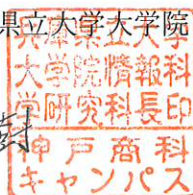 県立大学大学院
兵庫県立大学
大学院情報科
学研究科長印
神戸商科
キャンパス